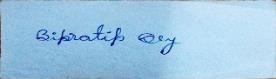 Bipratip Dey